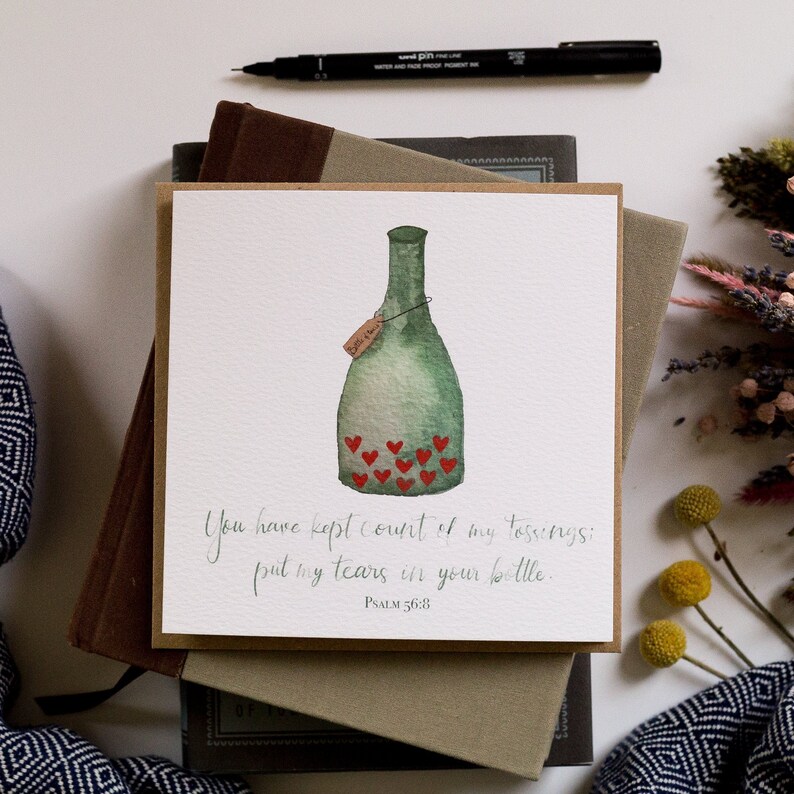 uni pin FINE LINE
WATER AND FADE PROOF PIGMENT INK
0.3
You have kept count of my tossings;
put my tears in your bottle.
Psalm 56:8
OF